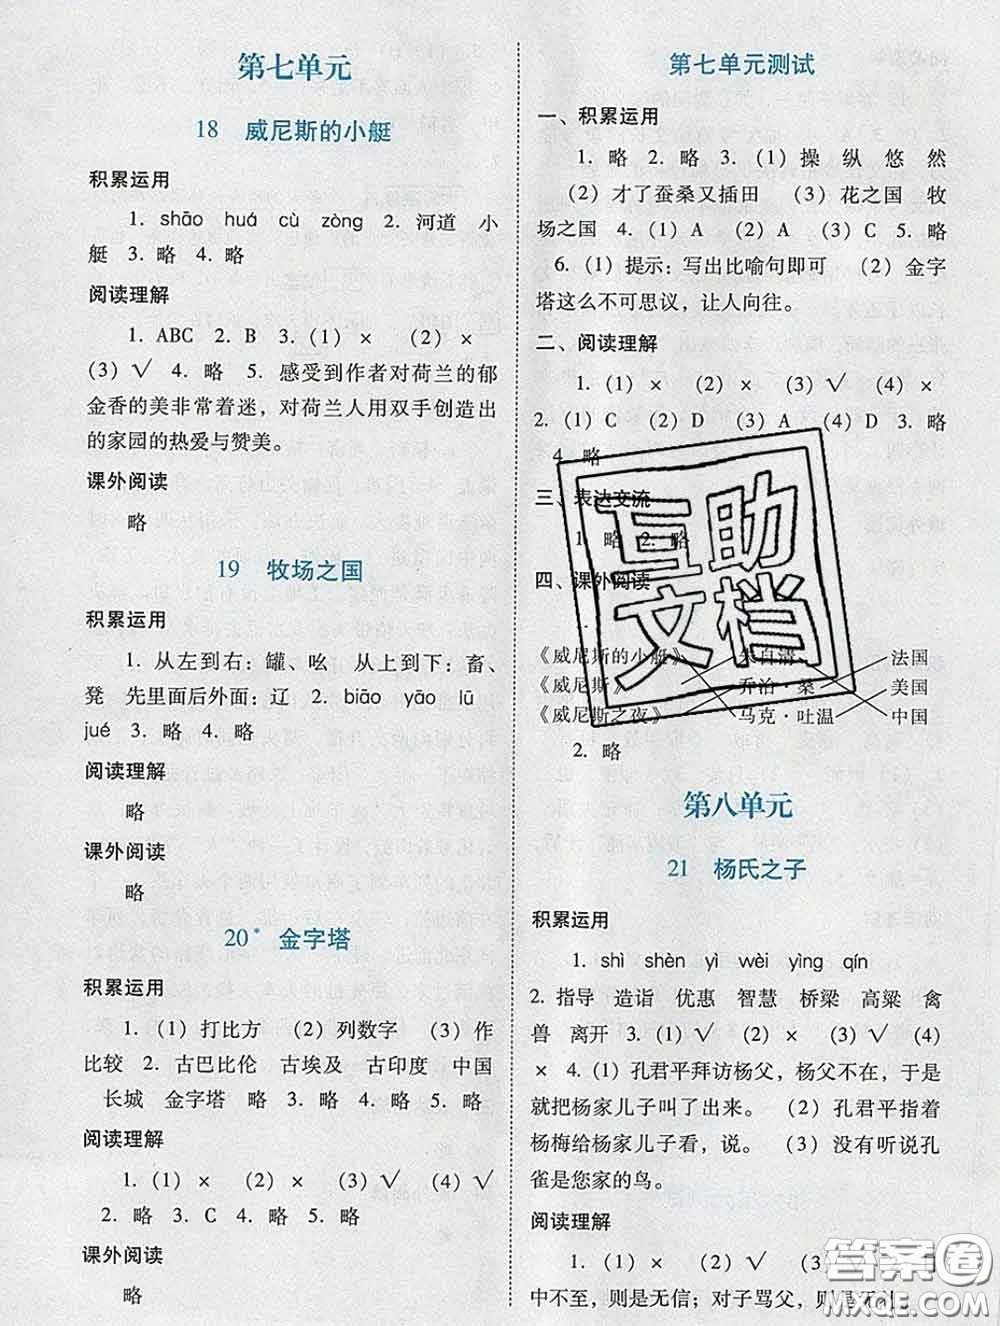 第七单元
18 威尼斯的小艇
积累运用
1. shāo huá cù zòng 2. 河道 小
艇 3. 略 4. 略
阅读理解
1. ABC 2. B 3. (1) × (2) ×
(3) √ 4. 略 5. 感受到作者对荷兰的郁
金香的美非常着迷，对荷兰人用双手创造出
的家园的热爱与赞美。
课外阅读
略
19 牧场之国
积累运用
1. 从左到右：罐、吆 从上到下：畜、
凳 先里面后外面：辽 2. biāo yāo lū
jué 3. 略 4. 略
阅读理解
略
课外阅读
略
20* 金字塔
积累运用
1. (1) 打比方 (2) 列数字 (3) 作
比较 2. 古巴比伦 古埃及 古印度 中国
长城 金字塔 略 3. 略 4. 略 5. 略
阅读理解
1. (1) × (2) × (3) √ (4) √
2. 略 3. C 4. 略 5. 略
课外阅读
略
第七单元测试
一、积累运用
1. 略 2. 略 3. (1) 操 纵 悠 然
(2) 才了蚕桑又插田 (3) 花之国 牧
场之国 4. (1) A (2) A (3) C 5. 略
6. (1) 提示：写出比喻句即可 (2) 金字
塔这么不可思议，让人向往。
二、阅读理解
1. (1) × (2) × (3) √ (4) ×
2. (1) C (2) D (3) A (4) D 3. 略
4. 略
三、表达交流
1. 略 2. 略
四、课外阅读
《威尼斯的小艇》 朱自清 法国
《威尼斯》 乔治·桑 美国
《威尼斯之夜》 马克·吐温 中国
2. 略
第八单元
21 杨氏之子
积累运用
1. shì shèn yì wèi yìng qín
2. 指导 造诣 优惠 智慧 桥梁 高粱 禽
兽 离开 3. (1) √ (2) × (3) √ (4)
× 4. (1) 孔君平拜访杨父，杨父不在，于是
就把杨家儿子叫了出来。 (2) 孔君平指着
杨梅给杨家儿子看，说。 (3) 没有听说孔
雀是您家的鸟。
阅读理解
1. (1) × (2) √ (3) √
中不至，则是无信；对子骂父，则是无礼。
互助
文档
答案圈
MXQE.COM